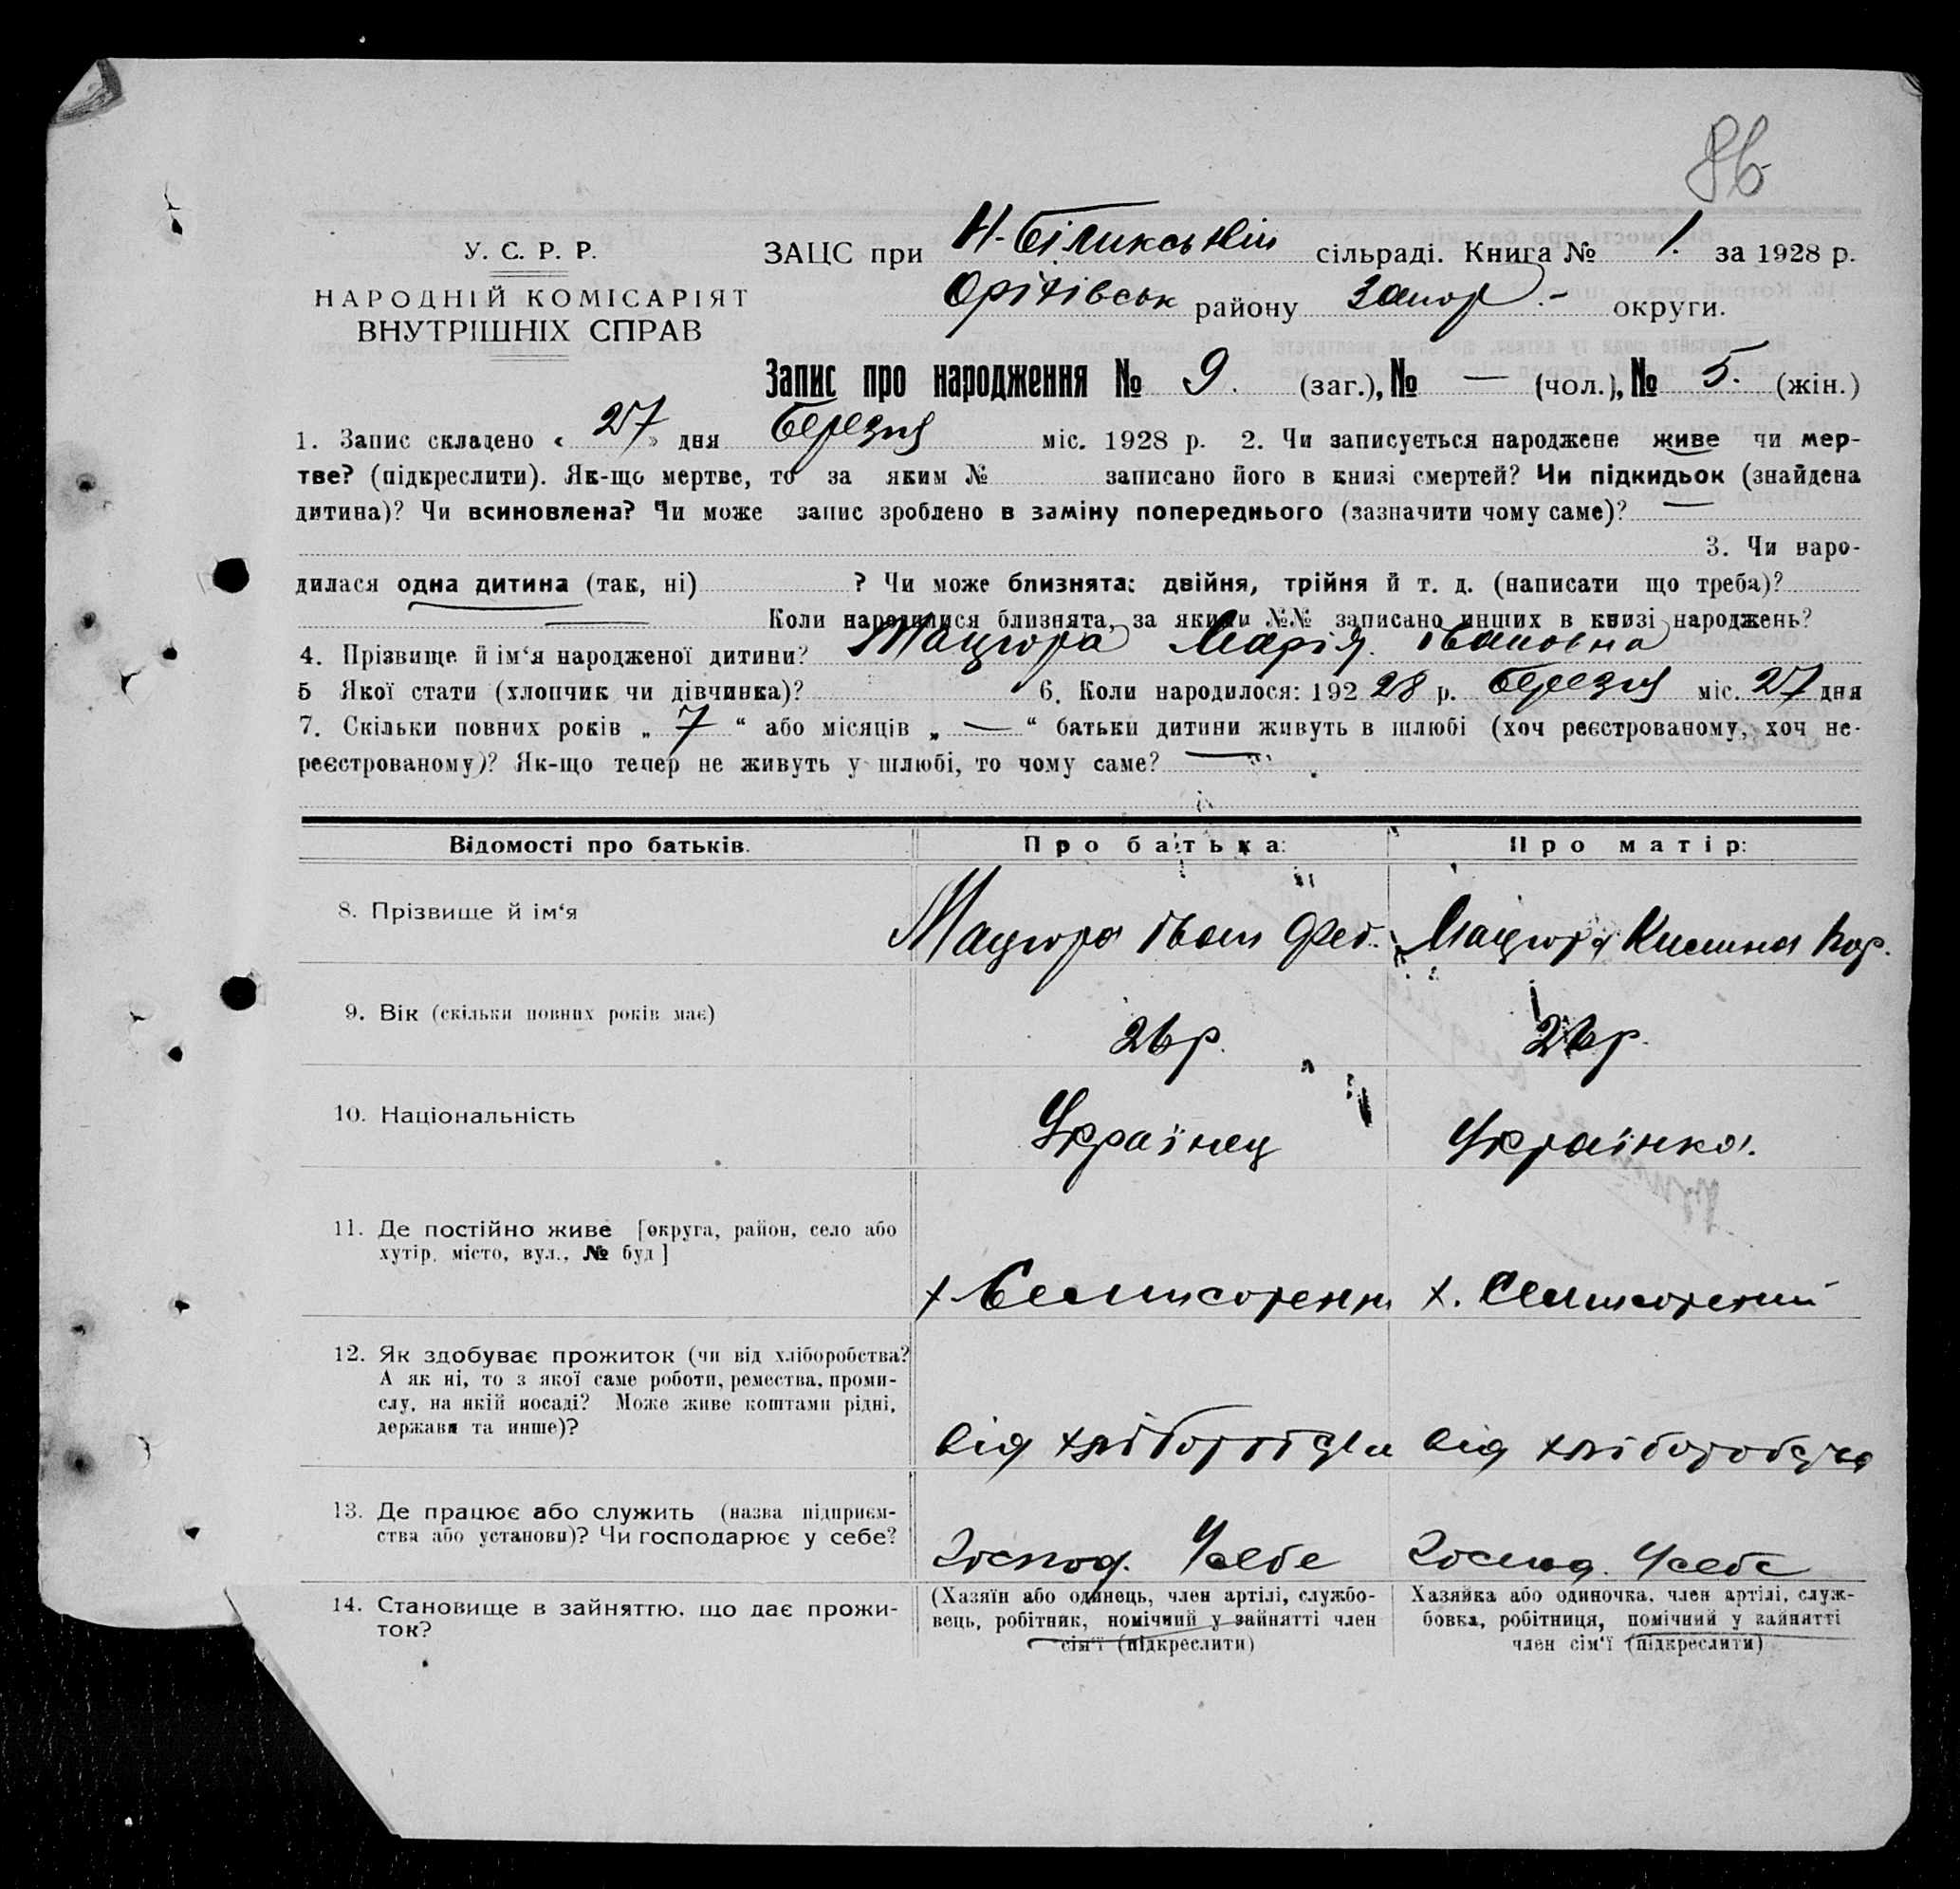 86
У. С. Р. Р.
НАРОДНІЙ КОМІСАРІЯТ
ВНУТРІШНІХ СПРАВ
ЗАЦС при Н-Біликівській сільраді. Книга № 1. за 1928 р.
Оріхівськ району Запор. - округи.
Запис про народження № 9. (заг.), № — (чол.), № 5. (жін.)
1. Запис складено « 27 » дня березня міс. 1928 р. 2. Чи записується народжене живе чи мер-
тве? (підкреслити). Як-що мертве, то за яким № записано його в книзі смертей? Чи підкидьок (знайдена
дитина)? Чи всиновлена? Чи може запис зроблено в заміну попереднього (зазначити чому саме)? —
3. Чи наро-
дилася одна дитина (так, ні) ? Чи може близнята: двійня, трійня й т. д. (написати що треба)?
— Коли народилися близнята, за якими №№ записано инших в книзі народжень?
4. Прізвище й ім‘я народженої дитини? Мацюра Марія Івановна
5 Якої стати (хлопчик чи дівчинка)? 6. Коли народилося: 192 28 р. березня міс. 27 дня
7. Скільки повних років „ 7 “ або місяців „ — “ батьки дитини живуть в шлюбі (хоч реєстрованому, хоч не-
реєстрованому)? Як-що тепер не живуть у шлюбі, то чому саме? —
Відомості про батьків. Про батька: Про матір:
8. Прізвище й ім‘я Мацюра Іван Фед. Мацюра Кор.
9. Вік (скільки повних років має) 26 р. 26 р.
10. Національність Українец Українка.
11. Де постійно живе [округа, район, село або
хутір, місто, вул., № буд ]
х. Семисотенн х. Семисотений
12. Як здобуває прожиток (чи від хліборобства?
А як ні, то з якої саме роботи, ремества, проми-
слу, на якій посаді? Може живе коштами рідні,
держави та инше)?
від хліборобства від хліборобства
13. Де працює або служить (назва підприєм-
ства або установи)? Чи господарює у себе?
Господ. У себе Господ. У себе
14. Становище в зайняттю, що дає прожи-
ток?
(Хазяїн або одинець, член артілі, службо-
вець, робітник, помічний у зайнятті член
сім‘ї (підкреслити)
Хазяйка або одиночка, член артілі, служ-
бовка, робітниця, помічний у зайнятті
член сім‘ї (підкреслити)